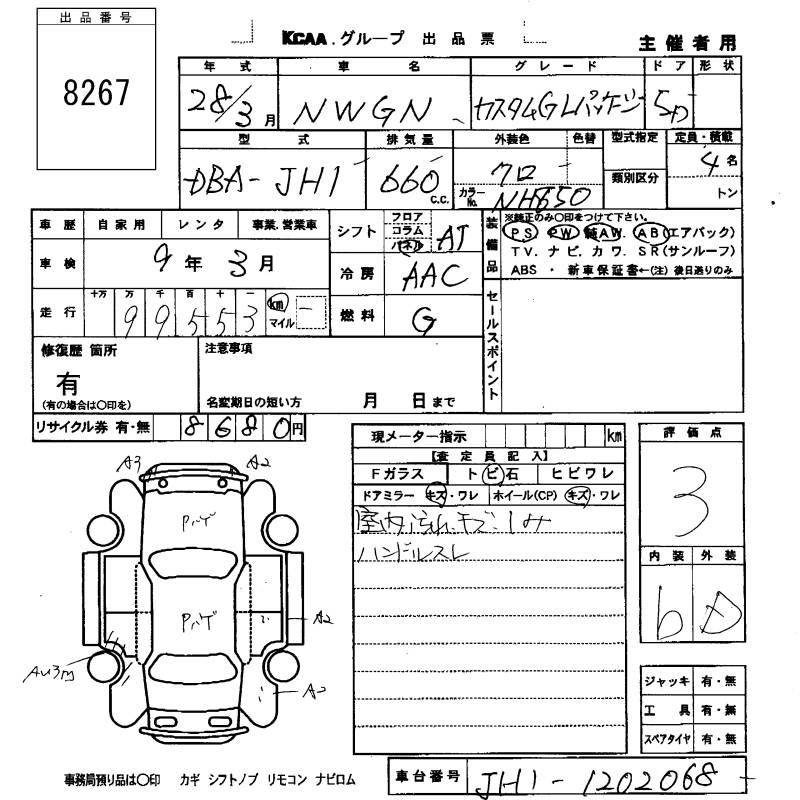 出品番号
8267
KCAA.グループ 出品票
主催者用
年式 車名 グレード ドア 形状
28/3月 NWGN カスタムGLパッケージ 5D
型式 排気量 外装色 色替 型式指定 定員・積載
DBA-JH1 660 c.c. クロ カラーNo. NH850 類別区分 4名
トン
車歴 自家用 レンタ 事業.営業車
車検 9年 3月
走行 十万 万 千 百 十 一
99553 km マイル
シフト フロア コラム パネル AT
冷房 AAC
燃料 G
装備品
※純正のみ〇印をつけて下さい。
PS PW 純AW. AB(エアバック)
TV. ナビ. カワ. SR(サンルーフ)
ABS ・ 新車保証書←(注) 後日送りのみ
セールスポイント
修復歴 箇所
有
(有の場合は〇印を)
注意事項
名変期日の短い方 月 日まで
リサイクル券 有・無 8680円
現メーター指示 km
【査定員記入】
Fガラス トビ石 ヒビワレ
ドアミラー キズ・ワレ ホイール(CP) キズ・ワレ
室内汚れ.キズ.シミ
ハンドルスレ
評価点
3
内装 外装
b D
ジャッキ 有・無
工具 有・無
スペアタイヤ 有・無
A3 A2
Pハゲ
Pハゲ
A2
AU3
A2
事務局預り品は〇印 カギ シフトノブ リモコン ナビロム
車台番号 JH1-1202068